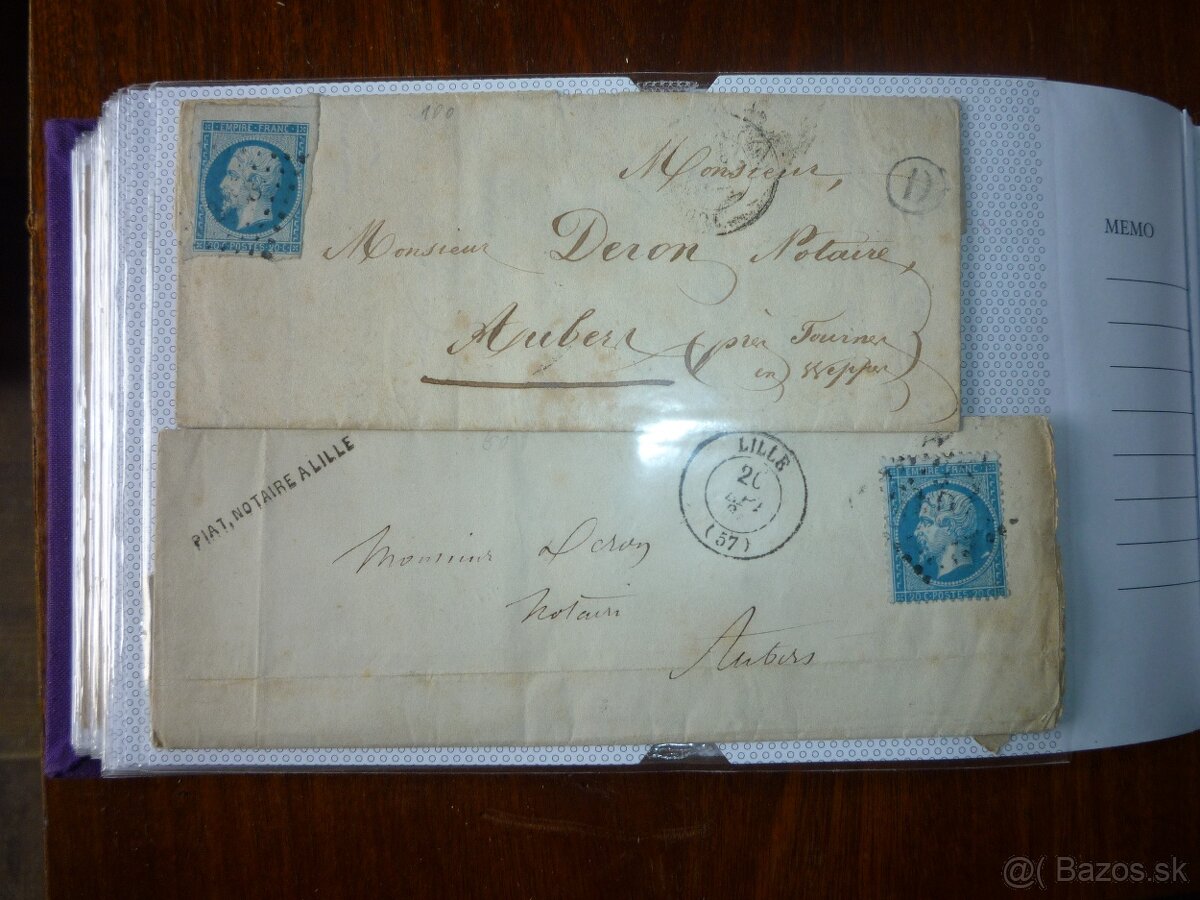 180
EMPIRE FRANC
20 C POSTES 20 C
Monsieur,
D
Monsieur Deron Notaire,
Aubers (près Fournes
en Weppes)
MEMO
PIAT, NOTAIRE A LILLE
LILLE
(57)
EMPIRE FRANC
20 C POSTES 20 C
Monsieur Deron
Notaire
Aubers
@( Bazos.sk